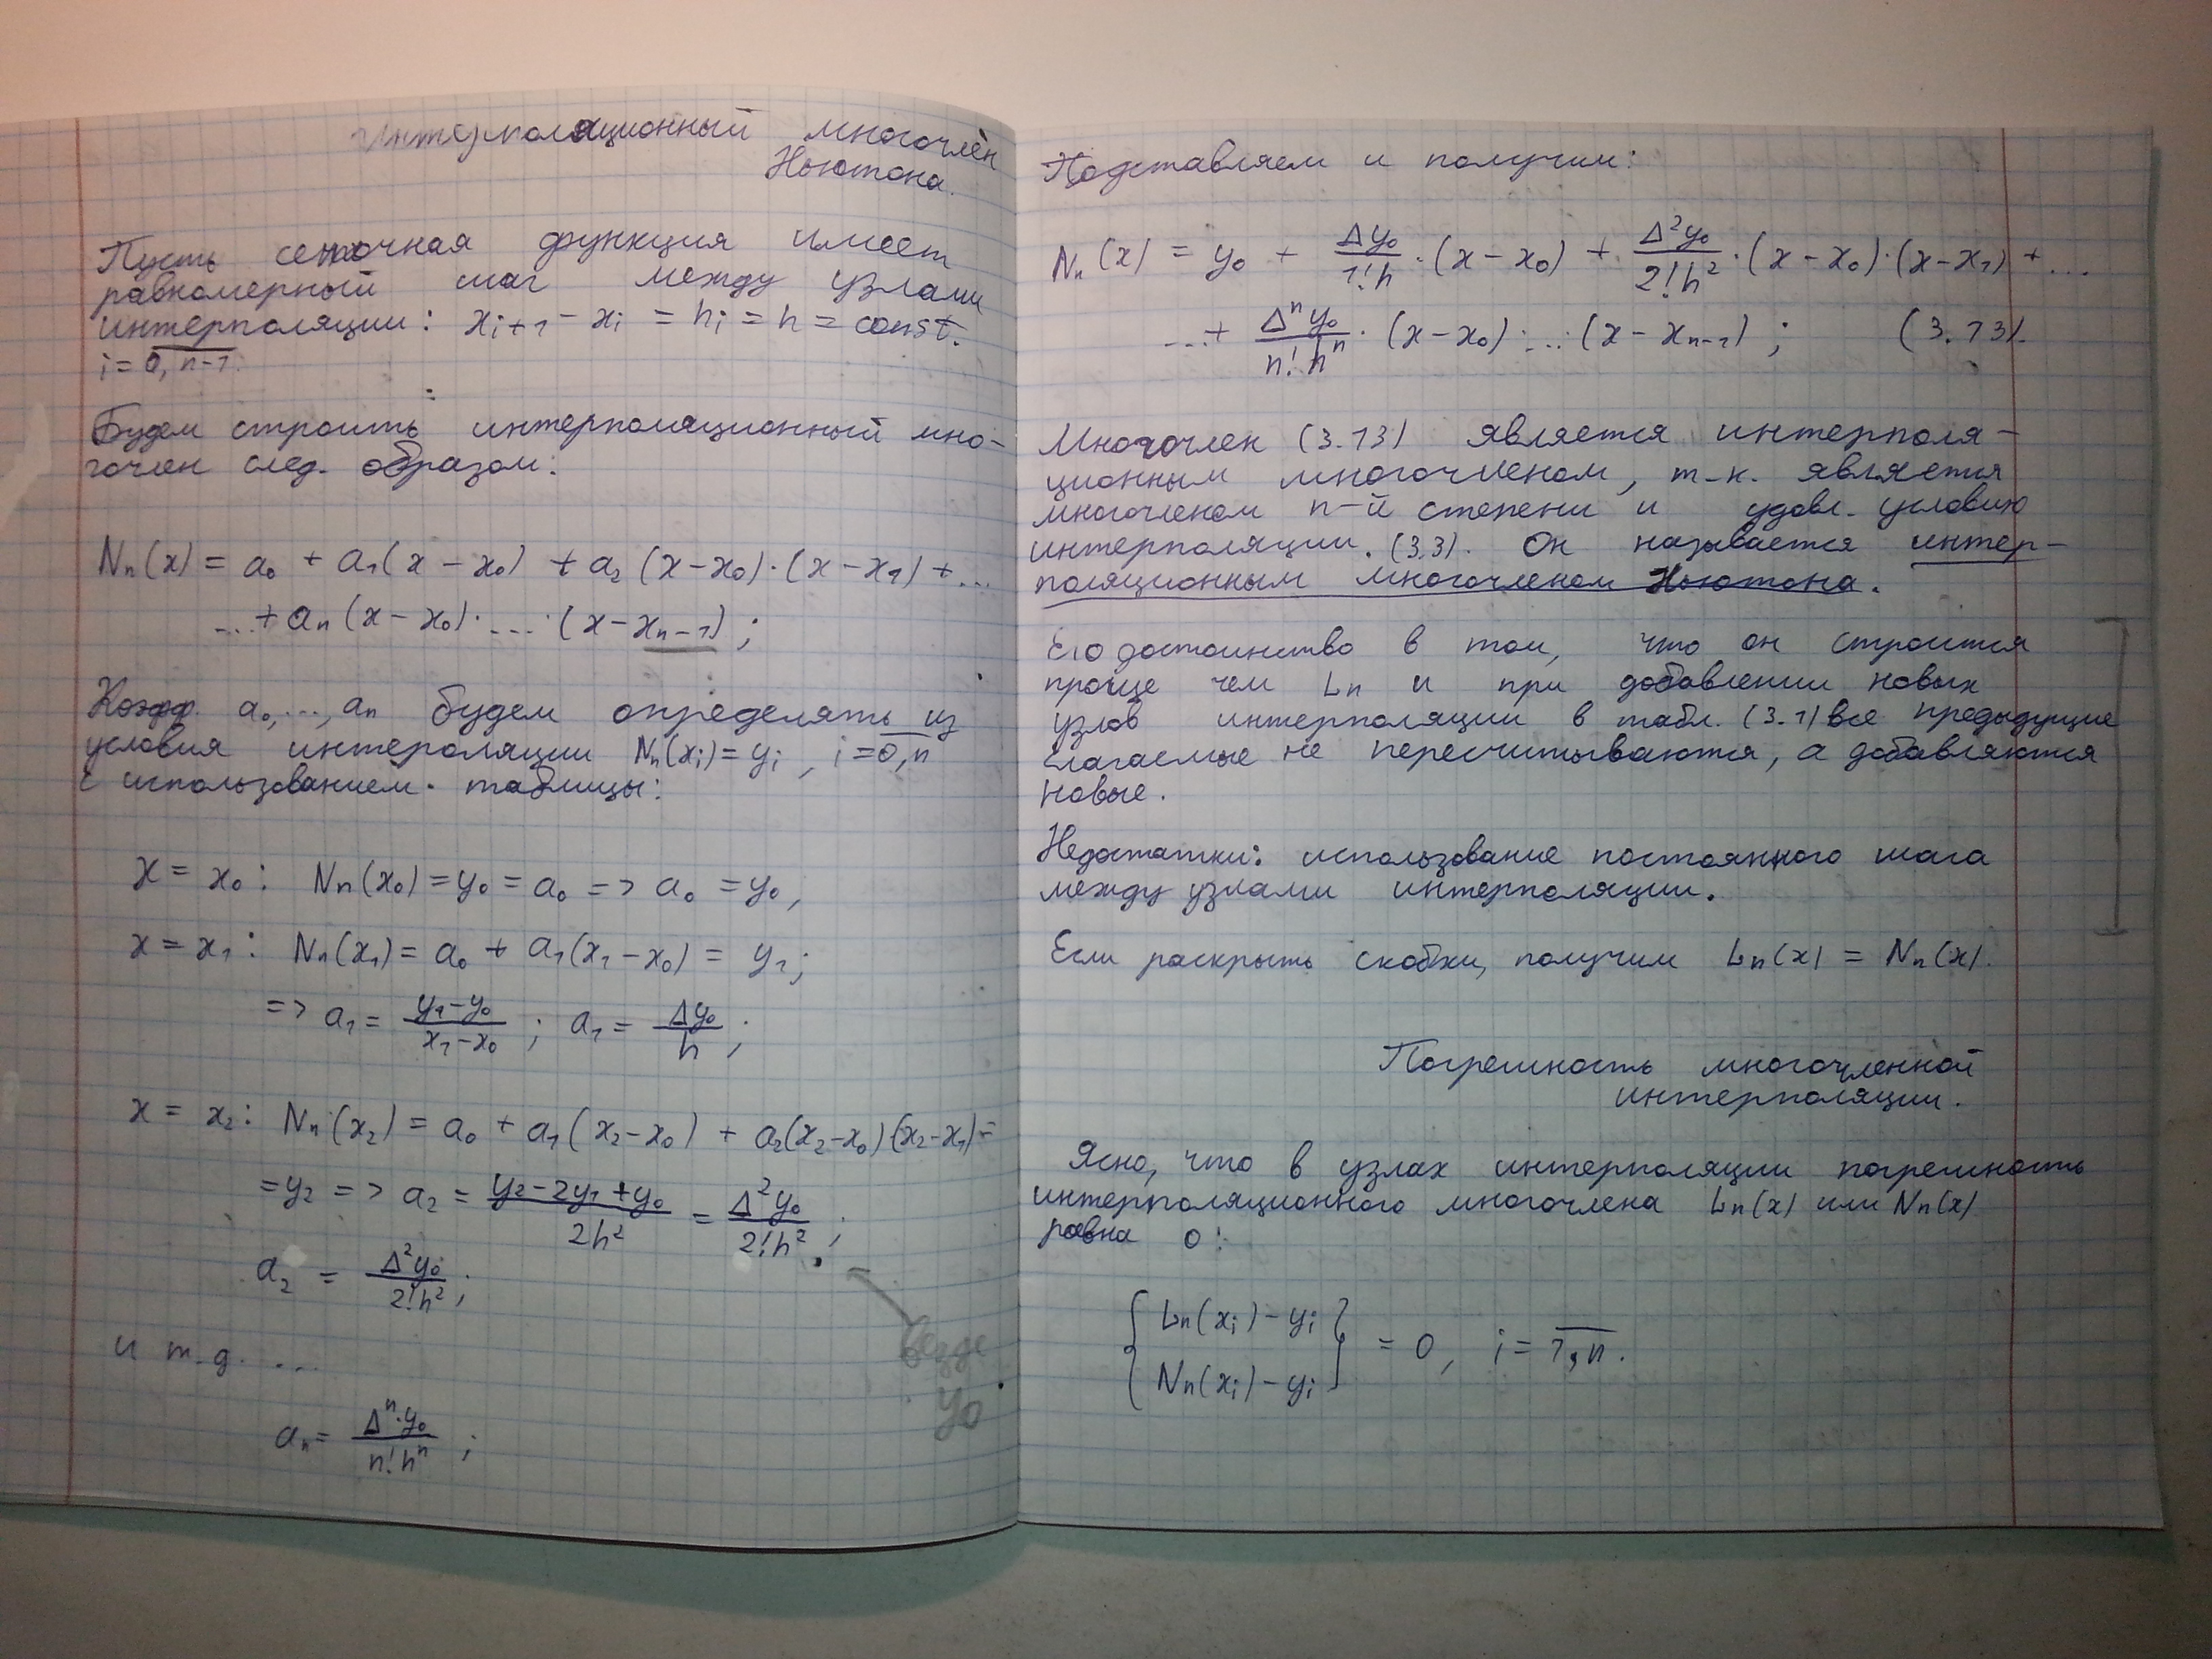 Интерполяционный многочлен
Ньютона.
Пусть сеточная функция имеет
равномерный шаг между узлами
интерполяции: xᵢ₊₁ − xᵢ = hᵢ = h = const.
i = 0, n−1.
Будем строить интерполяционный мно-
гочлен след. образом:
Nₙ(x) = a₀ + a₁(x − x₀) + a₂(x−x₀)·(x−x₁) + ...
...+ aₙ(x−x₀)·...·(x−xₙ₋₁);
Коэфф. a₀,...,aₙ будем определять из
условия интероляции Nₙ(xᵢ) = yᵢ, i = 0,n
с использованием таблицы:
x = x₀: Nₙ(x₀) = y₀ = a₀ => a₀ = y₀,
x = x₁: Nₙ(x₁) = a₀ + a₁(x₁−x₀) = y₁;
=> a₁ = (y₁−y₀)/(x₁−x₀); a₁ = Δy₀/h;
x = x₂: Nₙ(x₂) = a₀ + a₁(x₂−x₀) + a₂(x₂−x₀)(x₂−x₁) =
= y₂ => a₂ = (y₂−2y₁+y₀)/2h² = Δ²y₀/2!h²;
a₂ = Δ²y₀/2!h²;
везде
y₀
и т.д. ...
aₙ = Δⁿ·y₀/n!hⁿ;
Подставляем и получим:
Nₙ(x) = y₀ + Δy₀/1!h·(x−x₀) + Δ²y₀/2!h²·(x−x₀)·(x−x₁) + ...
...+ Δⁿy₀/n!hⁿ·(x−x₀)·...·(x−xₙ₋₁); (3.13).
Многочлен (3.13) является интерполя-
ционным многочленом, т.к. является
многочленом n-й степени и удовл. условию
интерполяции. (3.3). Он называется интер-
поляционным многочленом Ньютона.
Его достоинство в том, что он строится
проще чем Lₙ и при добавлении новых
узлов интерполяции в табл. (3.1) все предыдущие
слагаемые не пересчитываются, а добавляются
новые.
Недостатки: использование постоянного шага
между узлами интерполяции.
Если раскрыть скобки, получим Lₙ(x) = Nₙ(x).
Погрешность многочленной
интерполяции.
Ясно, что в узлах интерполяции погрешность
интерполяционного многочлена Lₙ(x) или Nₙ(x)
равна 0:
{Lₙ(xᵢ) − yᵢ
Nₙ(xᵢ) − yᵢ} = 0, i = 1,n.